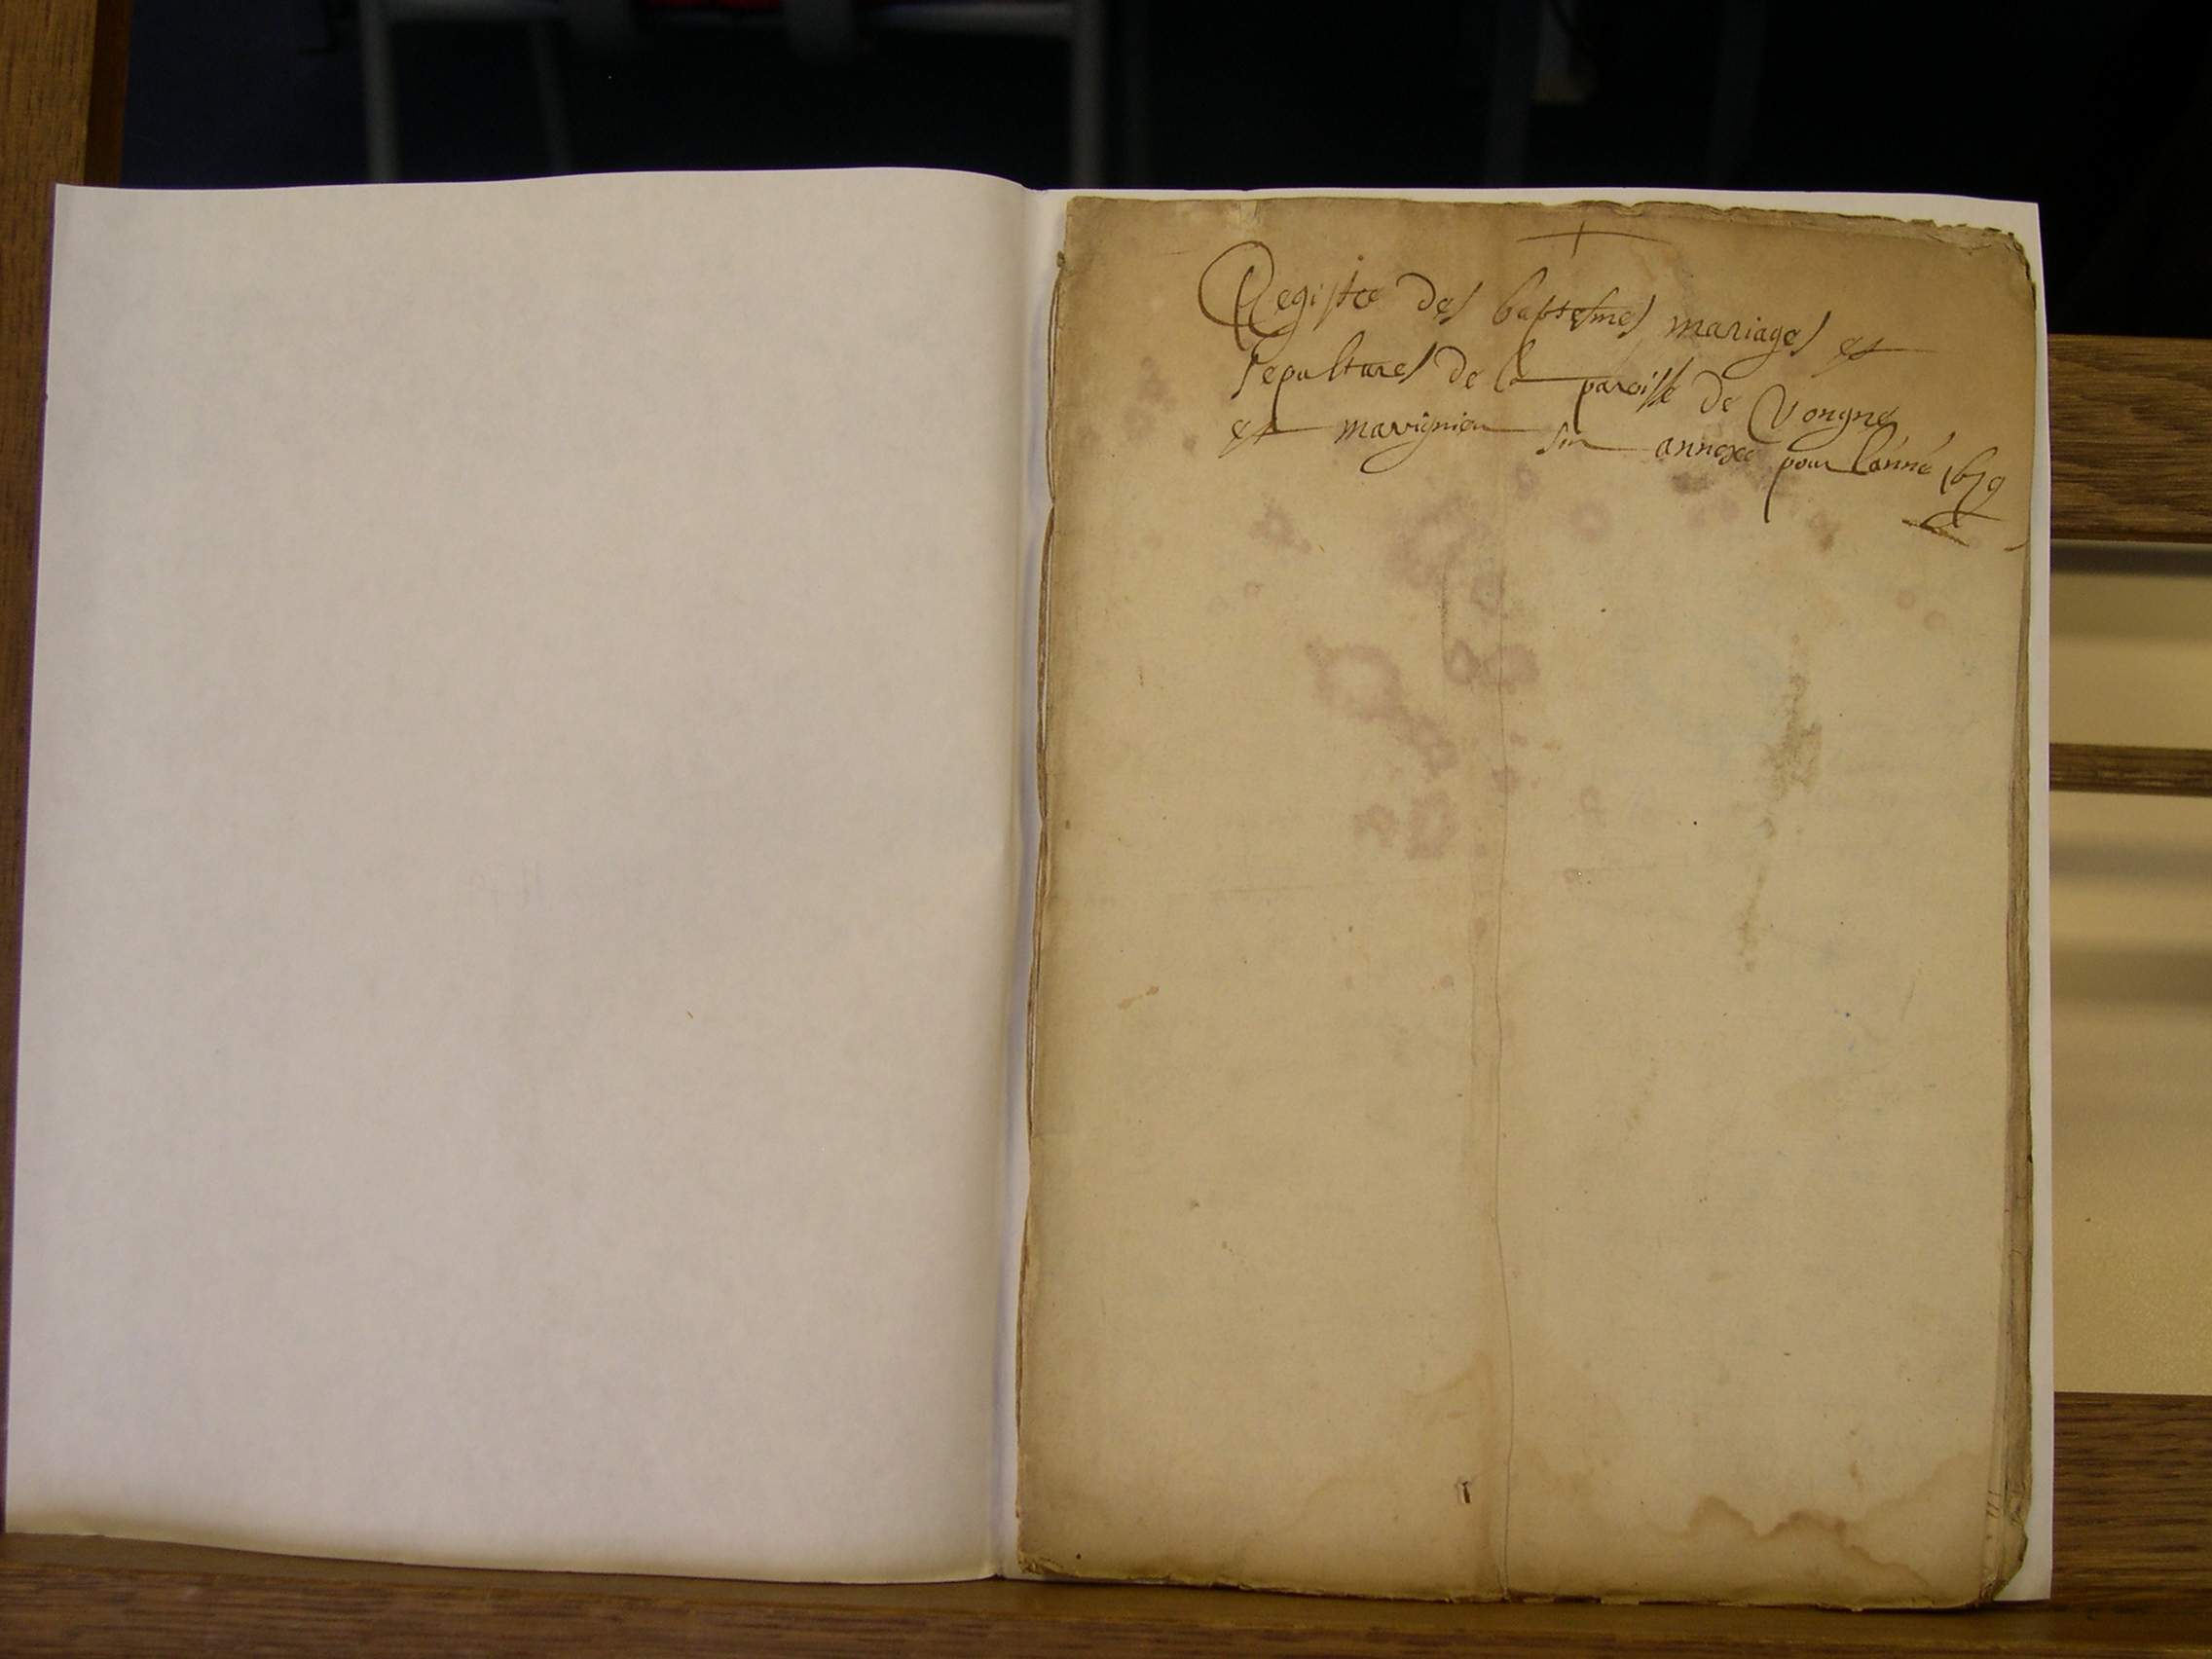 Registre des baptesmes mariages et
sepultures de la paroisse de Vongne
et marignieu son annexe pour l'année 1679